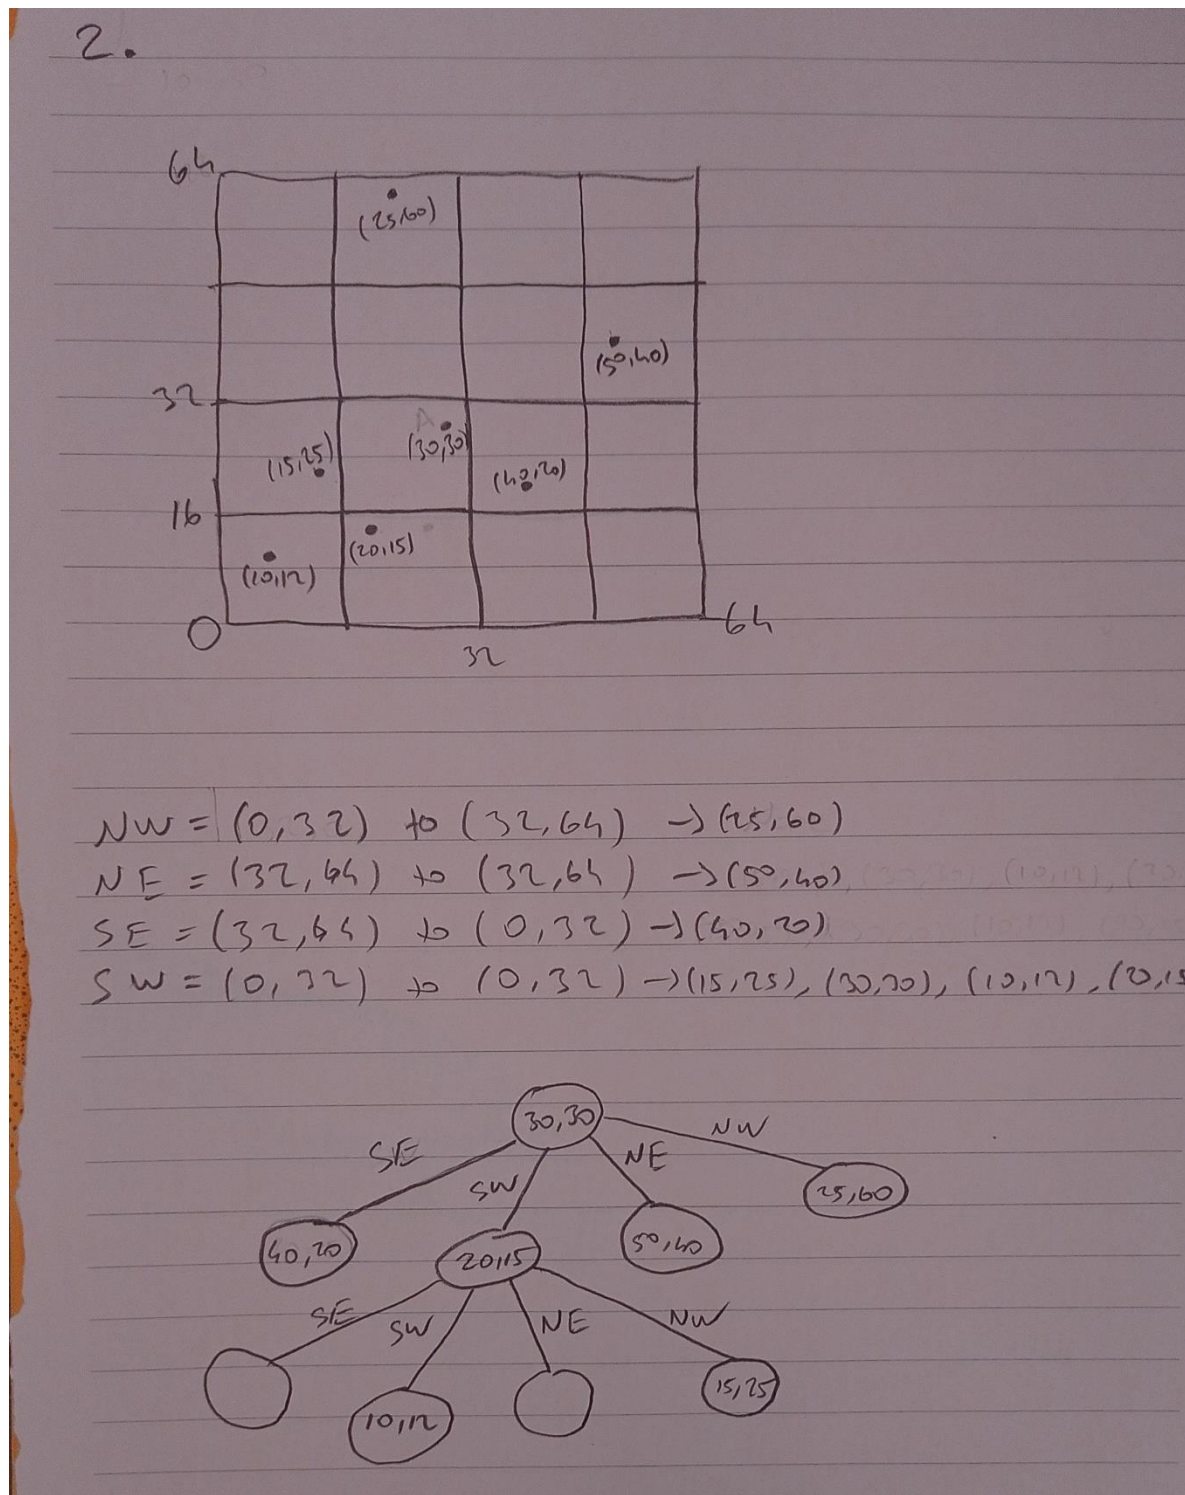 2.
64
(25,60)
(50,40)
32
(15,25)
(30,30)
(40,20)
16
(20,15)
(10,12)
0
64
32
NW = (0,32) to (32,64) → (25,60)
NE = (32,64) to (32,64) → (50,40)
SE = (32,64) to (0,32) → (40,20)
SW = (0,32) to (0,32) → (15,25), (30,30), (10,12), (20,15
30,30
NW
SE
NE
SW
25,60
40,20
20,15
50,40
SE
SW
NE
NW
15,25
10,12